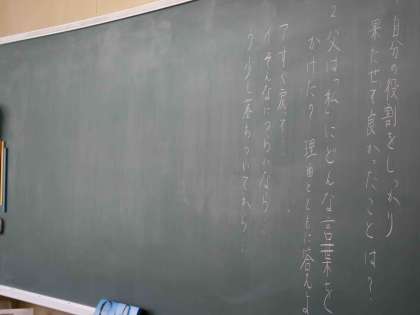 自分の役割をしっかり
果たせて良かったことは？
2 父は「私」にどんな言葉を
かけたか？理由とともに答えよ
ア すぐ戻って…
イ そんなにつらいなら…
ウ 少し落ちついてから…